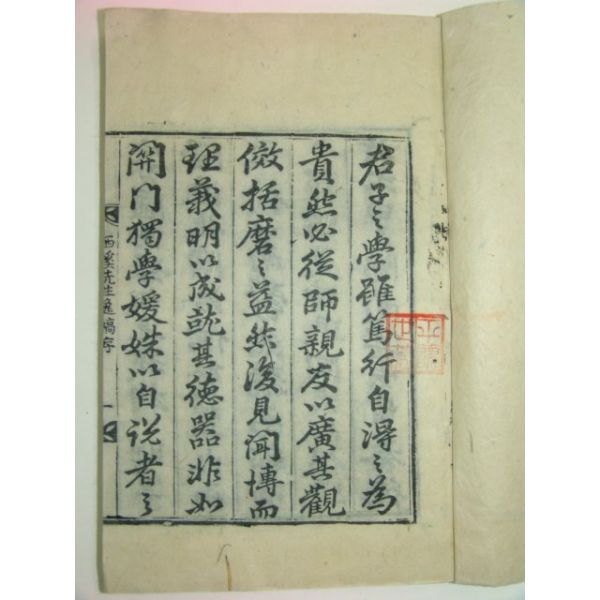 君子之學雖篤行自得之為
貴然必從師親友以廣其觀
倣括磨之益然後見聞博而
理義明以成就其德器非如
閉門獨學媛姝以自說者之
西溪先生逸稿序
一